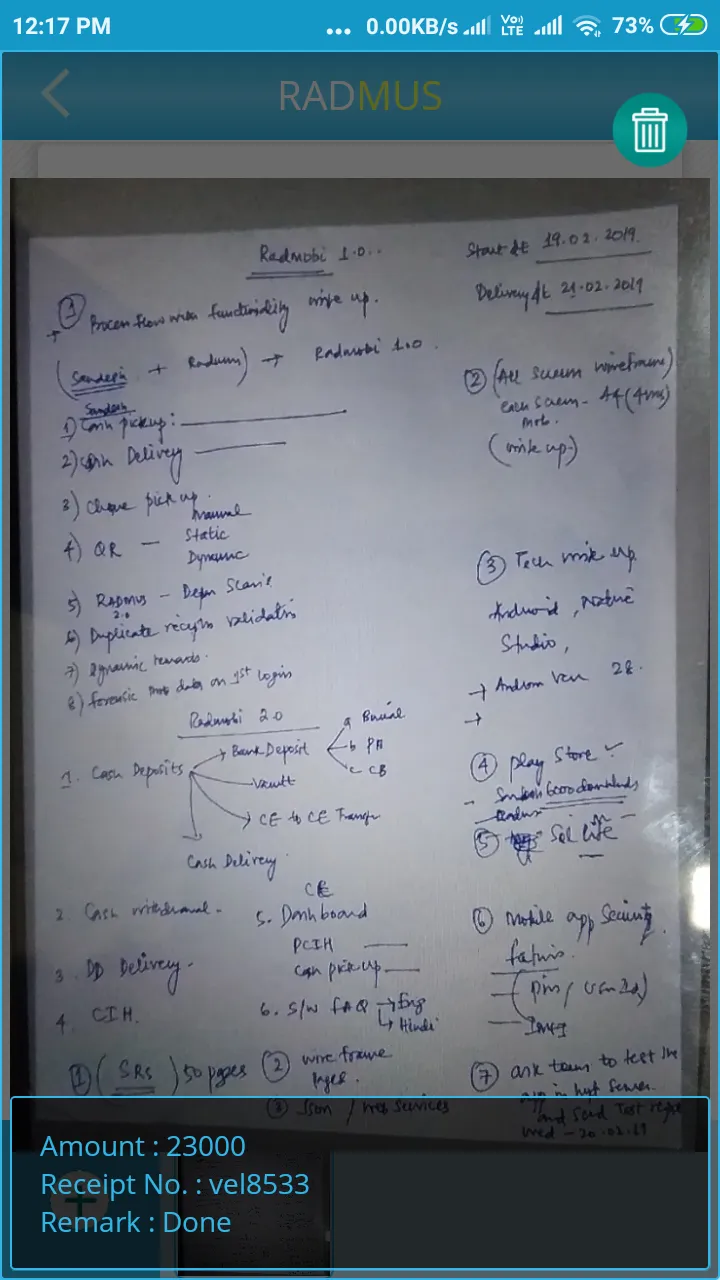 12:17 PM
... 0.00KB/s Vo) LTE 73%
RADMUS
Radmobi 1.0..
Start dt 19.02.2019.
Delivery dt 21.02.2019
1
functionality write up.
+ Radium) → Radmobi 1.0.
2 (All screen wireframe)
each screen - A4
(write up)
1) Cash pickup:
2) Cash Delivery
3) Cheque pick up.
4) QR — Manual
Static
Dynamic
3 Tech write up
Android,
Studio,
→ 28.
→
5) RADMUS
2.0
6) Duplicate validation
7) Dynamic rewards.
8) Forensic data on 1st login
Radmobi 2.0
1. Cash Deposits
Bank Deposit
a Burial
b PA
c CB
Vault
CE to CE Transfer
Cash Delivery
4 play Store ✓
6000 downloads
5 Sql lite
2. Cash withdrawal -
3. DD Delivery.
4. CIH.
CE
5. Dashboard
PCIH
Cash pick up
6. S/W FAQ → Eng
Hindi
6 Mobile app Security
1 (SRS) 50 pages
2 wire frame
pages.
3 Json / web services
7 ask team to test the
app in
and Send Test
wed - 20.02.19
Amount : 23000
Receipt No. : vel8533
Remark : Done